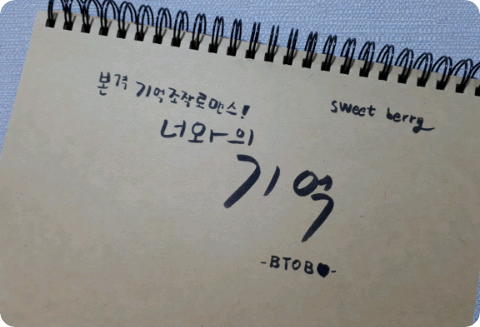 본격 기억조작로맨스!
sweet berry
너와의
기억
-BTOB♥-